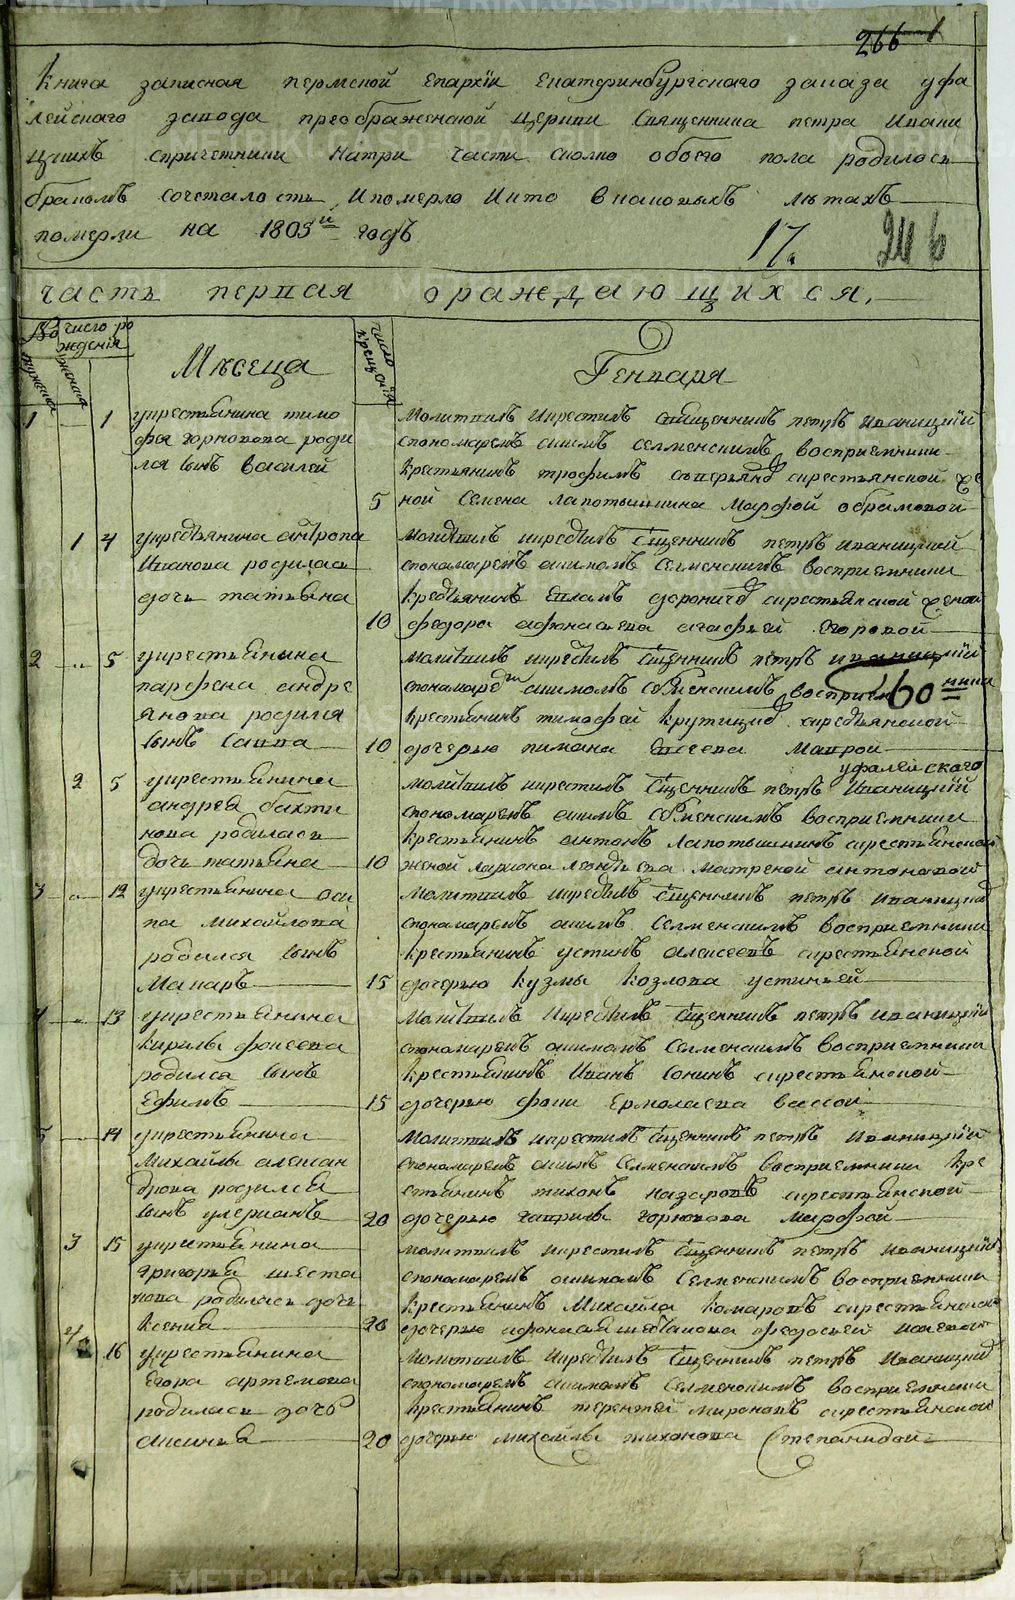 266
Книга записная пермской епархїи Екатеринбургскаго заказа уфа
лейскаго завода преображенской церкви Священника петра Ивани
цкихъ спричетники натри части сколко обоего пола родилось
бракомъ сочеталось Ипомерло Ихто внаковыхъ лѣтахъ
померли на 1805й годъ
17
246
часть первая ораждающихся,
число ро
ждения
Мѣсеца
число
крещения
Генваря
1 1 укрестьянина тимо
фея горнокова роди
лся сынъ василей
Молитвилъ Икрестилъ священникъ петръ Иваницкїй
спономаремъ селменскимъ восприемники
крестьянинъ трофимъ скрестьянской же
5 ной Семена лапотышкина Марфой обрамовой
1 4 укрестьянина антропа
Иванова родилась
дочь татьяна
молитвилъ икрестилъ священникъ петръ иваницкий
спономаремъ селменскимъ восприемники
крестьянинъ скрестьянской женой
10 федора афонасьева агафьей егоровой
2 5 укрестьянина
парфена андре
янова родился
сынъ савва
молитвилъ икрестилъ священникъ петръ иваницкїй
спономаремъ восприемники
60
крестьянинъ тимофей скрестьянской
10 дочерью Маврой
уфалейского
2 5 укрестьянина
андрея бахти
нова родилась
дочь татьяна
молитвилъ икрестилъ священникъ петръ Иваницкїй
спономаремъ восприемники
крестьянинъ антонъ лапотышкинъ скрестьянской
10 женой лариона леонтьева матреной антоновой
3 12 укрестьянина оси
па михайлова
родился сынъ
Макаръ
молитвилъ икрестилъ священникъ петръ иваницкий
спономаремъ селменскимъ восприемники
крестьянинъ устинъ алексеевъ скрестьянской
15 дочерью кузмы козлова устиньей
4 13 укрестьянина
кирилы фокеева
родился сынъ
Ефимъ
молитвилъ икрестилъ священникъ петръ иваницкїй
спономаремъ селменскимъ восприемники
крестьянинъ Иванъ сонинъ скрестьянской
15 дочерью фоки Ермолаева вассой
5 14 укрестьянина
михайлы алексан
дрова родился
сынъ
молитвилъ икрестилъ священникъ петръ иваницкїй
спономаремъ селменскимъ восприемники кре
стьянинъ тихонъ назаровъ скрестьянской
20 дочерью гаврилы горнокова марфой
3 15 укрестьянина
григорья шеста
кова родилась дочь
ксения
молитвилъ икрестилъ священникъ петръ иваницкїй
спономаремъ селменскимъ восприемники
крестьянинъ Михайла комаровъ скрестьянской
20 дочерью афонасья федосьей
4 16 укрестьянина
Егора артемова
родилась дочь
аксинья
молитвилъ икрестилъ священникъ петръ иваницкий
спономаремъ селменскимъ восприемники
крестьянинъ терентей мироновъ скрестьянской
20 дочерью михайлы тихонова Степанидой
METRIKI.GASO-URAL.RU